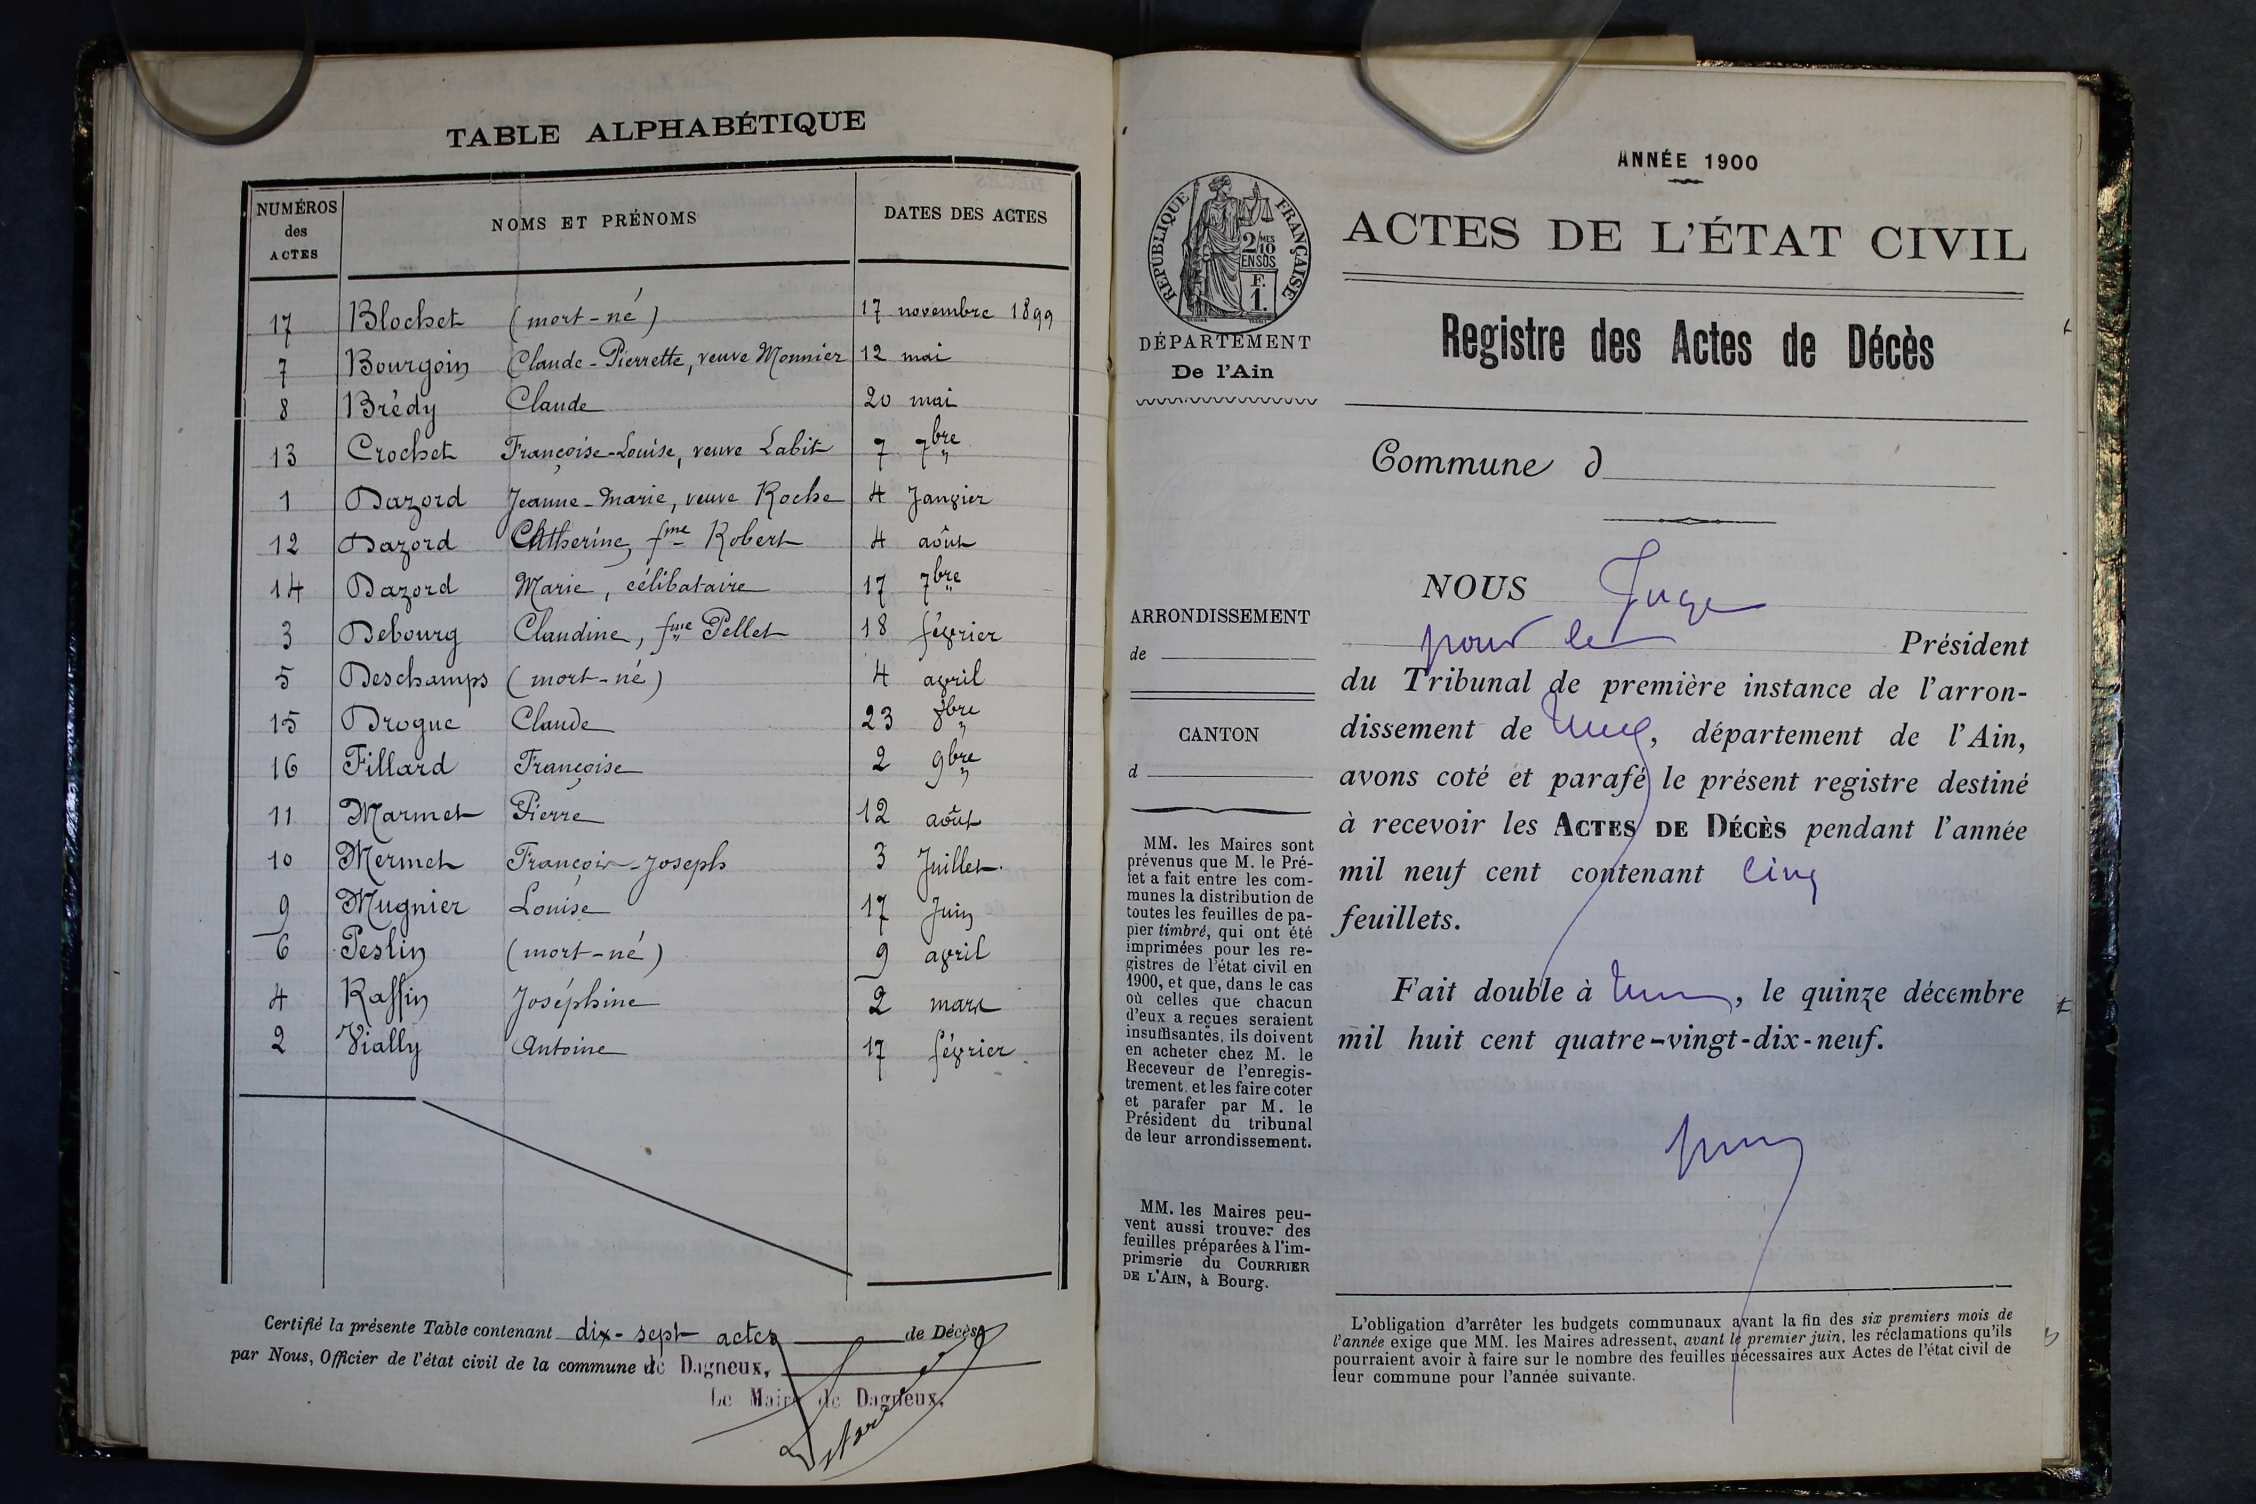 TABLE ALPHABÉTIQUE
NUMÉROS des ACTES NOMS ET PRÉNOMS DATES DES ACTES
17 Blochet (mort-né) 17 novembre 1899
7 Bourgoin Claude-Pierrette, veuve Monnier 12 mai
8 Brédy Claude 20 mai
13 Crochet Françoise-Louise, veuve Labit 7 7bre
1 Dazord Jeanne-Marie, veuve Roche 4 Janvier
12 Dazord Catherine, fme Robert 4 août
14 Dazord Marie, célibataire 17 7bre
3 Debourg Claudine, fme Pellet 18 février
5 Deschamps (mort-né) 4 avril
15 Drogue Claude 23 8bre
16 Fillard Françoise 2 9bre
11 Marmet Pierre 12 août
10 Mermet François-Joseph 3 Juillet.
9 Mugnier Louise 17 Juin
6 Peslin (mort-né) 9 avril
4 Raffin Joséphine 2 mars
2 Vially Antoine 17 février
Certifié la présente Table contenant dix-sept actes de Décès
par Nous, Officier de l'état civil de la commune de Dagneux,
Le Maire de Dagneux,
ANNÉE 1900
RÉPUBLIQUE FRANÇAISE
2/10 MES
EN SUS
F.
1.
DÉPARTEMENT
De l'Ain
ACTES DE L'ÉTAT CIVIL
Registre des Actes de Décès
Commune d
ARRONDISSEMENT
de
CANTON
d
MM. les Maires sont
prévenus que M. le Pré-
fet a fait entre les com-
munes la distribution de
toutes les feuilles de pa-
pier timbré, qui ont été
imprimées pour les re-
gistres de l'état civil en
1900, et que, dans le cas
où celles que chacun
d'eux a reçues seraient
insuffisantes, ils doivent
en acheter chez M. le
Receveur de l'enregis-
trement. et les faire coter
et parafer par M. le
Président du tribunal
de leur arrondissement.
MM. les Maires peu-
vent aussi trouver des
feuilles préparées à l'im-
primerie du COURRIER
DE L'AIN, à Bourg.
NOUS Juge
pour le Président
du Tribunal de première instance de l'arron-
dissement de , département de l'Ain,
avons coté et parafé le présent registre destiné
à recevoir les ACTES DE DÉCÈS pendant l'année
mil neuf cent contenant Cinq
feuillets.
Fait double à , le quinze décembre
mil huit cent quatre-vingt-dix-neuf.
L'obligation d'arrêter les budgets communaux avant la fin des six premiers mois de
l'année exige que MM. les Maires adressent, avant le premier juin, les réclamations qu'ils
pourraient avoir à faire sur le nombre des feuilles nécessaires aux Actes de l'état civil de
leur commune pour l'année suivante.